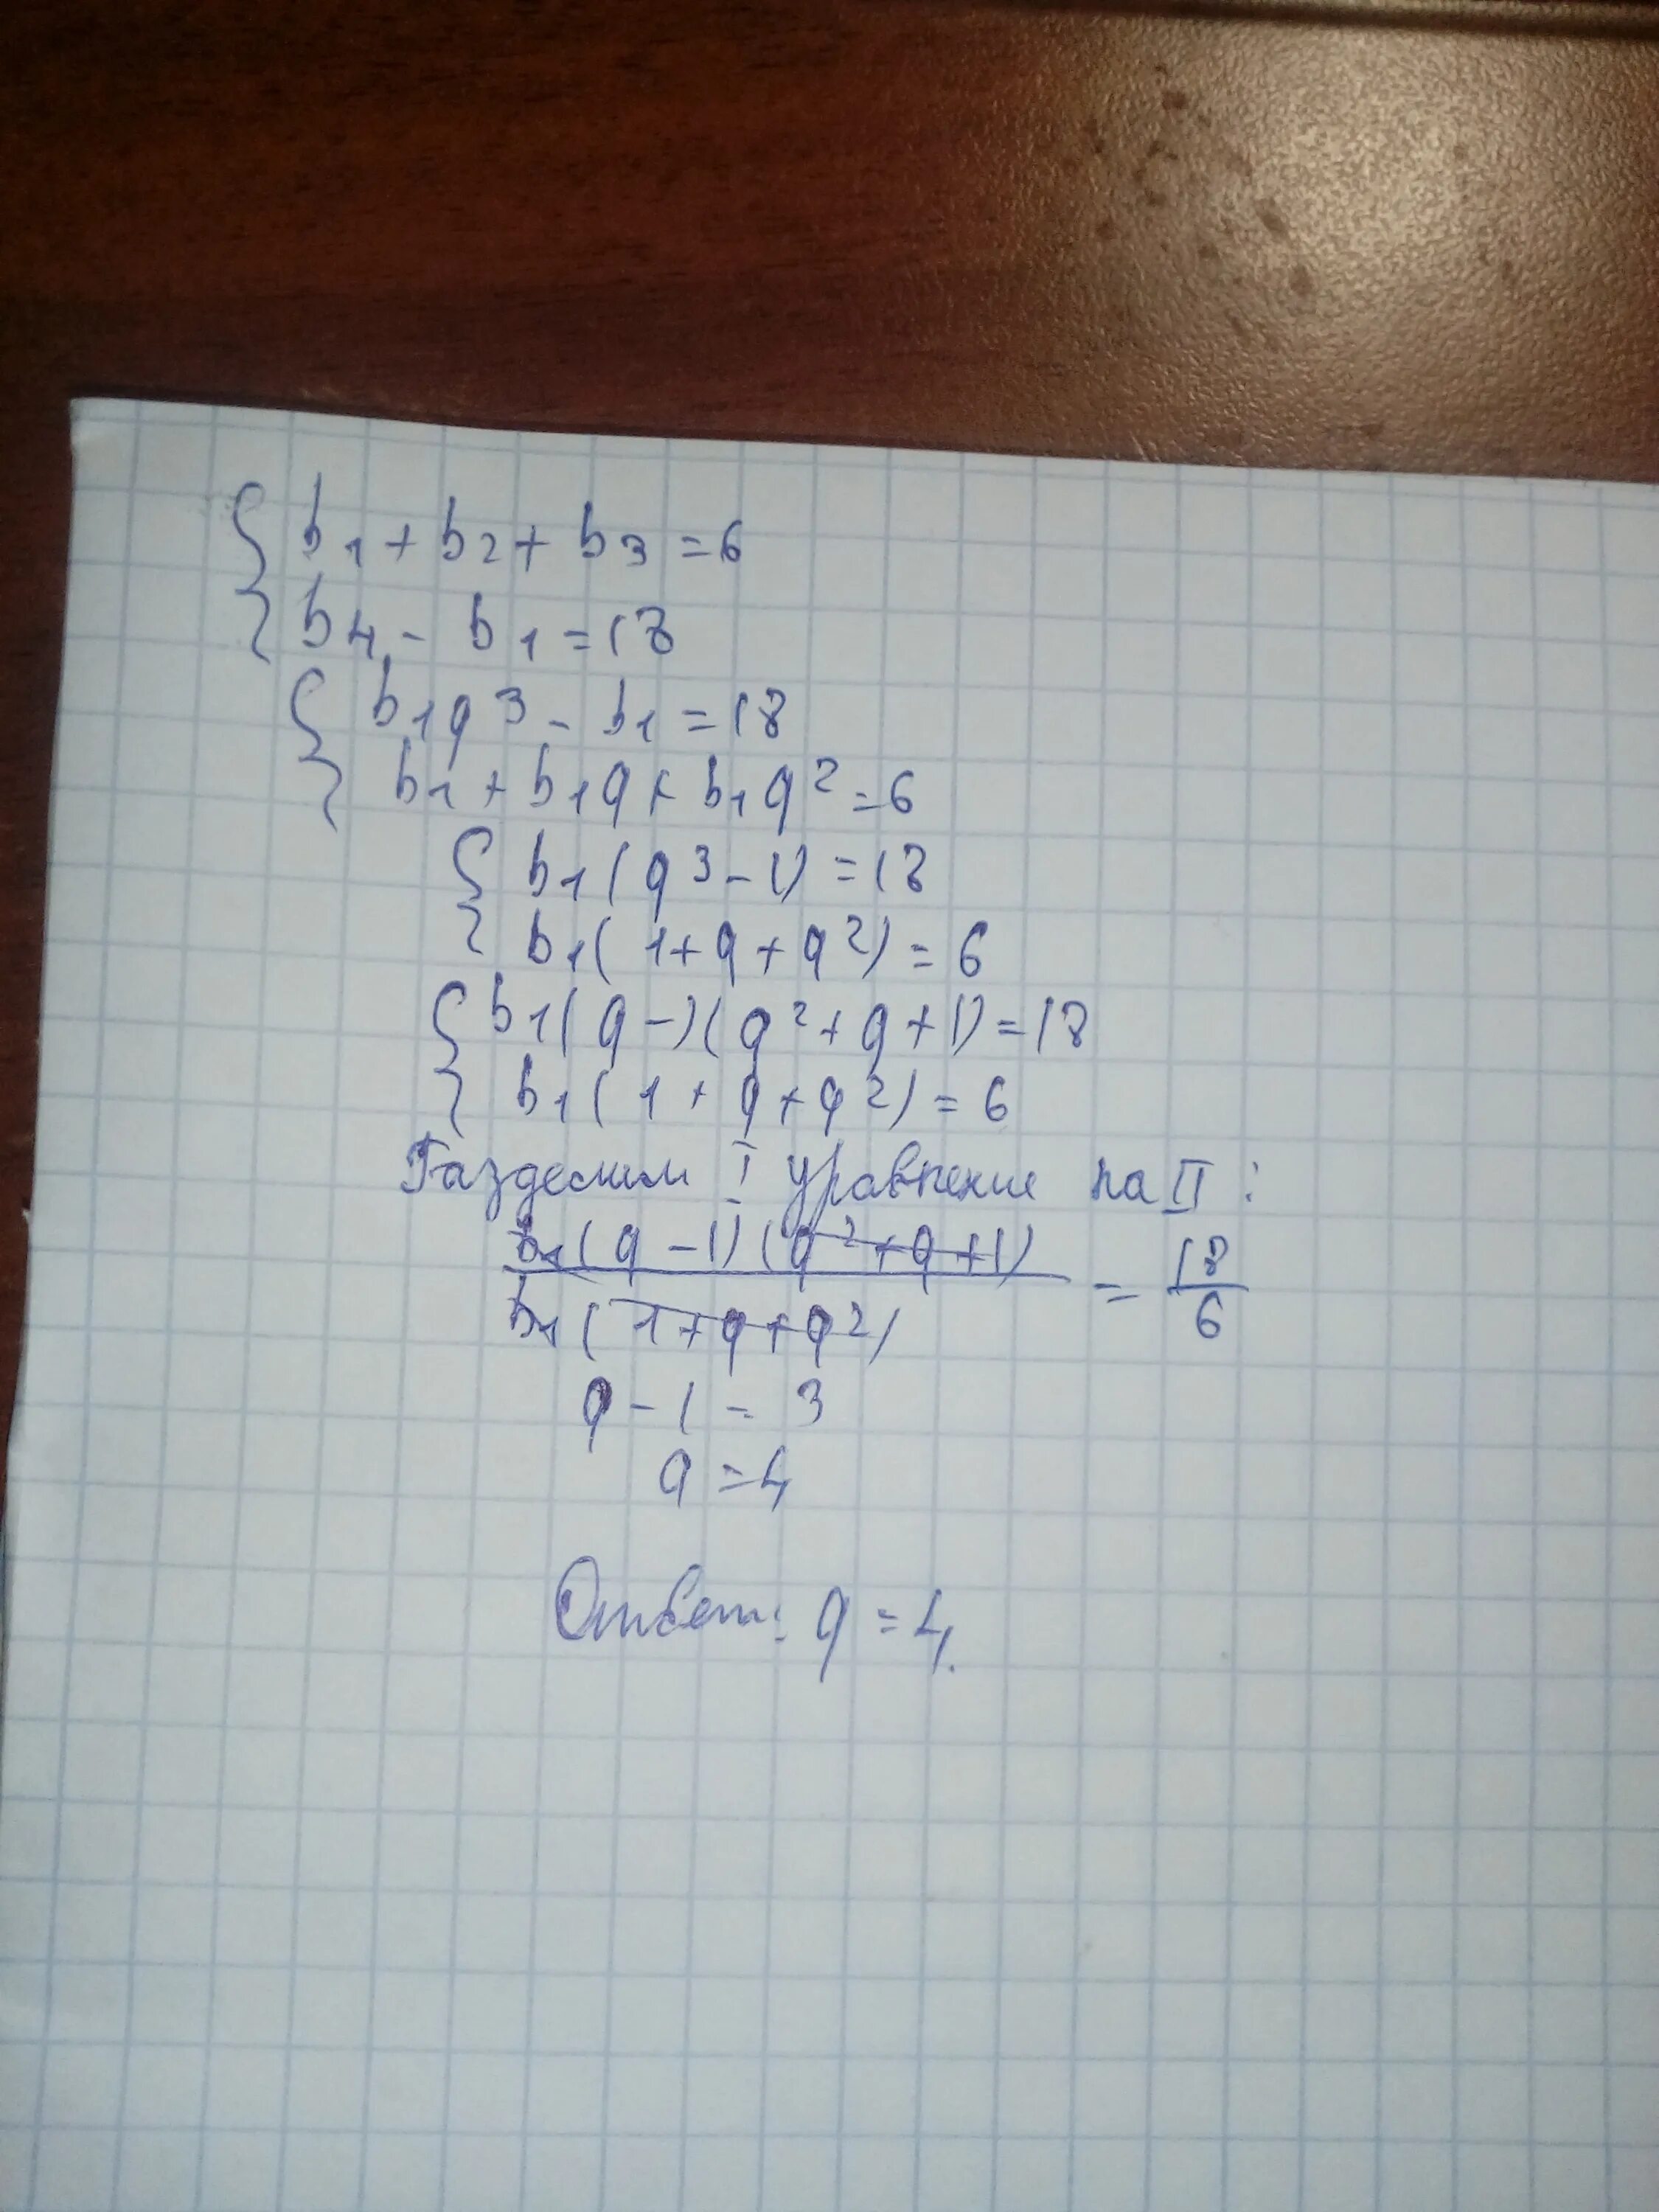 b₁ + b₂ + b₃ = 6
b₄ - b₁ = 18
b₁q³ - b₁ = 18
b₁ + b₁q + b₁q² = 6
b₁(q³ - 1) = 18
b₁(1 + q + q²) = 6
b₁(q -)(q² + q + 1) = 18
b₁(1 + q + q²) = 6
Разделим I уравнение на II:
b₁(q - 1)(q² + q + 1) / b₁(1 + q + q²) = 18/6
q - 1 = 3
q = 4
Ответ: q = 4.